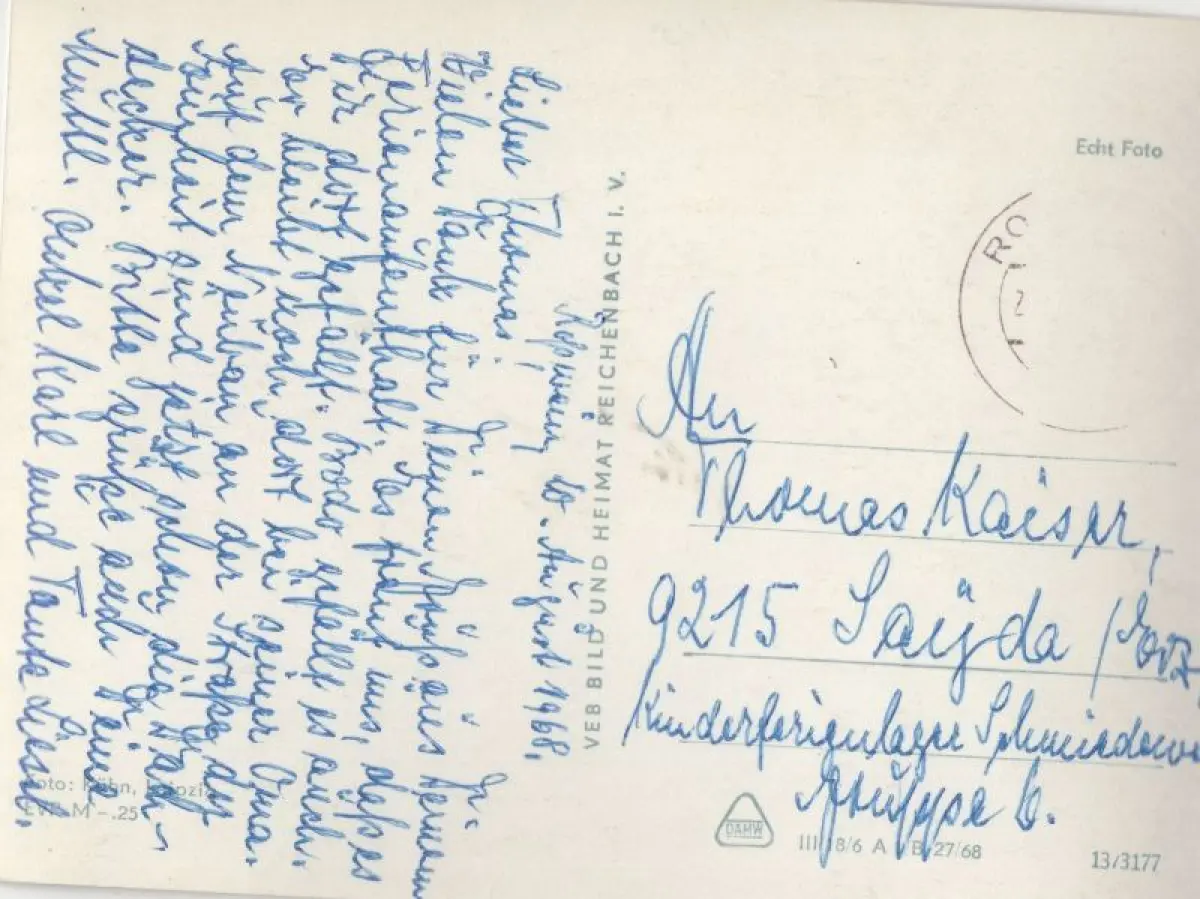 Roßwein, 10. August 1968.
Lieber Thomas!
Vielen Dank für Deinen Gruß aus Deinem
Ferienaufenthalt. Es freut uns, daß es
Dir dort gefällt. Bodo gefällt es auch.
Er bleibt noch dort bei seiner Oma.
Auf dem Neubau an der Straße der
Einheit sind jetzt schon die Dach-
decker. Bitte grüße auch Deine
Mutti. Onkel Karl und Tante
Foto: Kühn, Leipzig
EVP M -.25
VEB BILD UND HEIMAT REICHENBACH I. V.
Echt Foto
RO
2
An
Thomas Kaiser,
9215 Sayda / Erz
Kinderferienlager
Gruppe 6.
DAMW
III/18/6 A B 27/68
13/3177